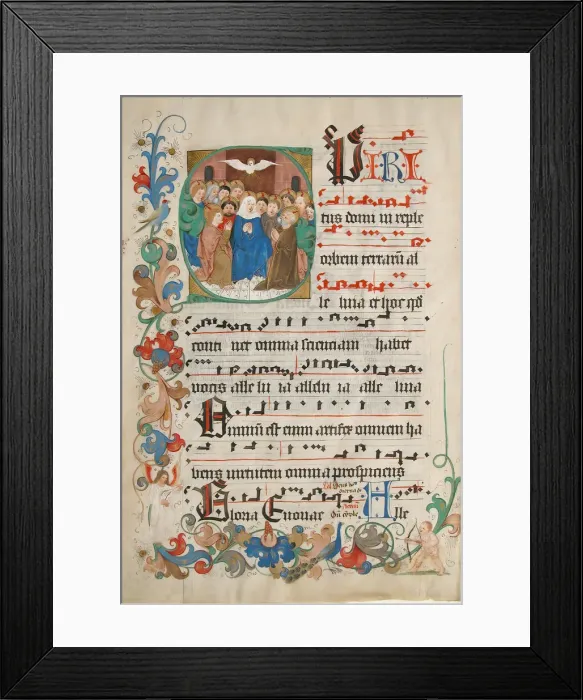 PIRI
tus domi ni reple
orbem terrarū al
le luia et hoc qd
conti net omnia scienciam habet
vocis alle lu ia allelu ia alle luia
Omniū est enim artifex omnem ha
bens virtutem omnia prospiciens
Gloria Euouae Alle